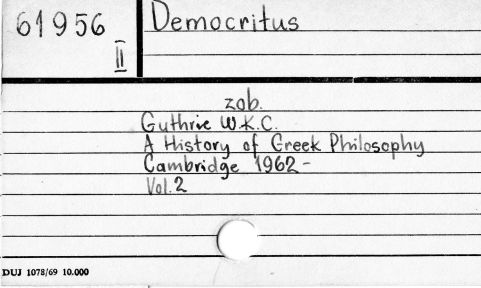 61956
II
Democritus
zob.
Guthrie W.K.C.
A History of Greek Philosophy
Cambridge 1962-
Vol. 2
DUJ 1078/69 10.000